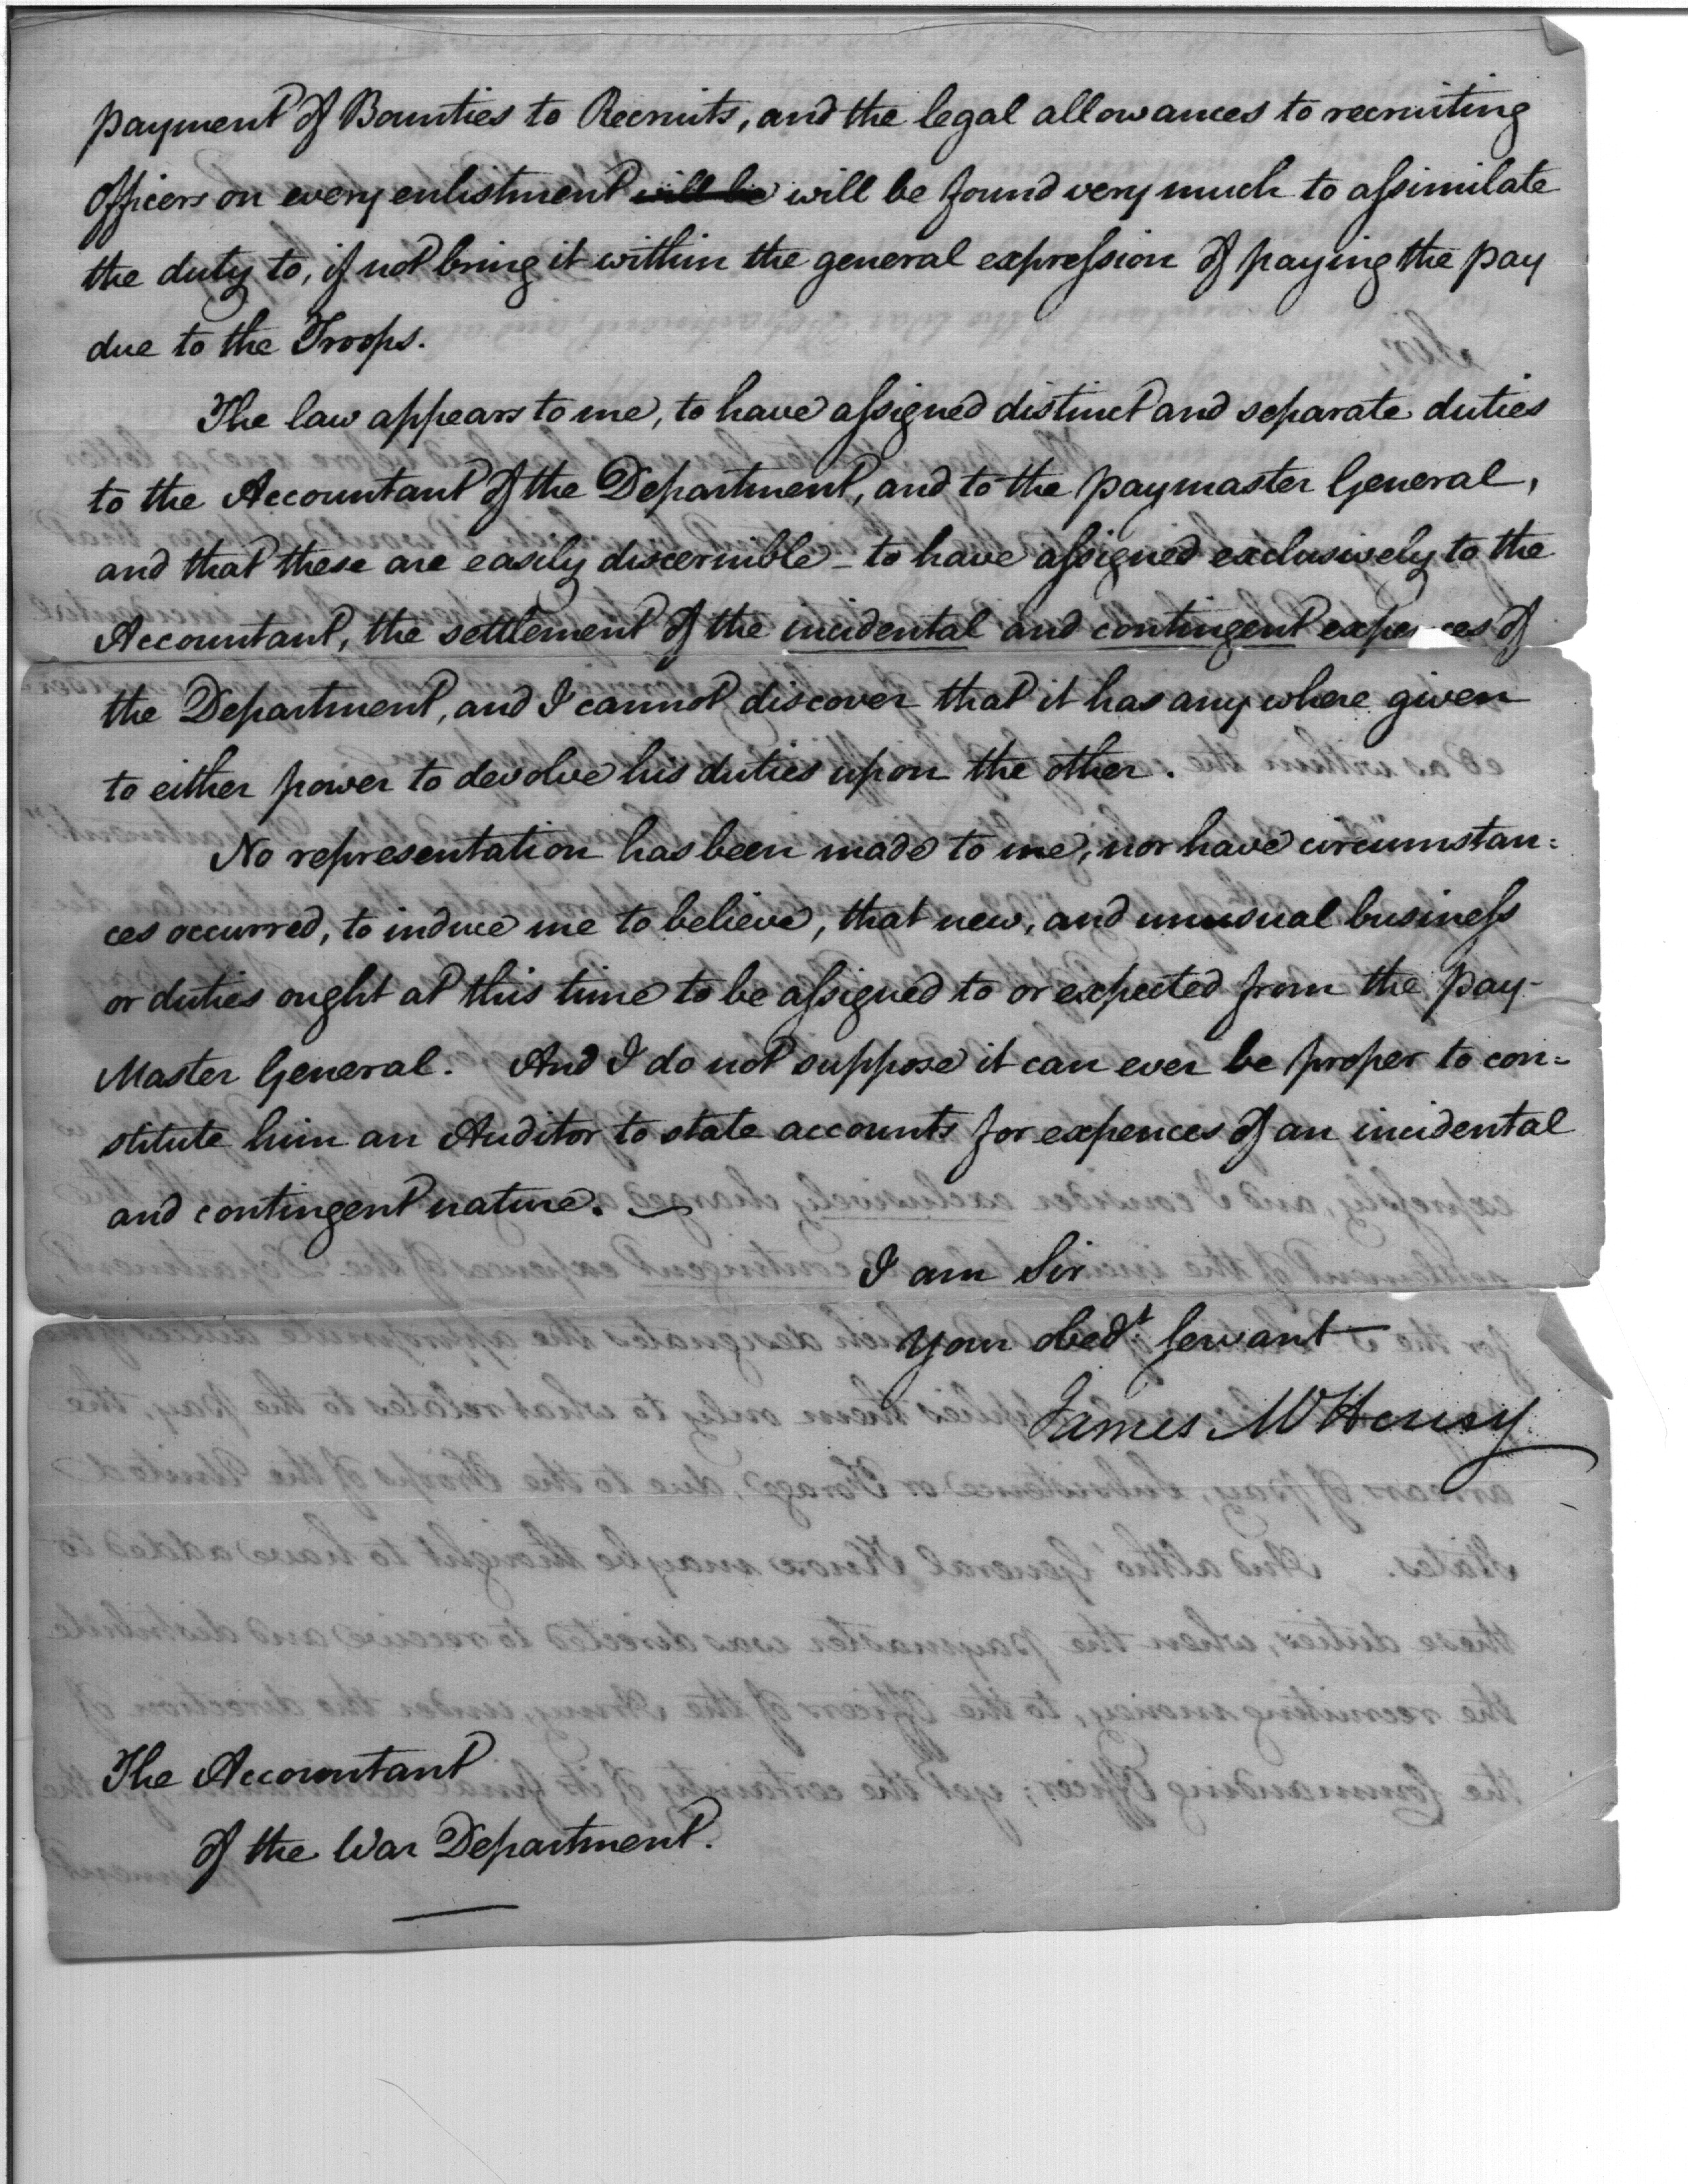 payment of Bounties to Recruits, and the legal allowances to recruiting
Officers on every enlistment will be will be found very much to assimilate
the duty to, if not bring it within the general expression of paying the pay
due to the Troops.
The law appears to me, to have assigned distinct and separate duties
to the Accountant of the Department, and to the paymaster General,
and that these are easily discernible – to have assigned exclusively to the
Accountant, the settlement of the incidental and contingent expe ces of
the Department, and I cannot discover that it has any where given
to either power to devolve his duties upon the other.
No representation has been made to me, nor have circumstan:
ces occurred, to induce me to believe, that new, and unusual business
or duties ought at this time to be assigned to or expected from the pay-
Master General. And I do not suppose it can ever be proper to con=
stitute him an Auditor to state accounts for expences of an incidental
and contingent nature. –
I am Sir
Your obedt Servant
James McHenry
The Accountant
of the War Department.